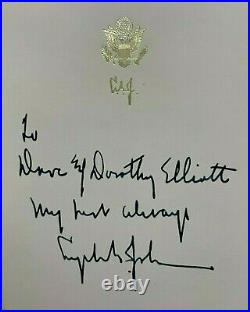 LBJ
To
Dave & Dorothy Elliott
My best always
Lyndon B. Johnson